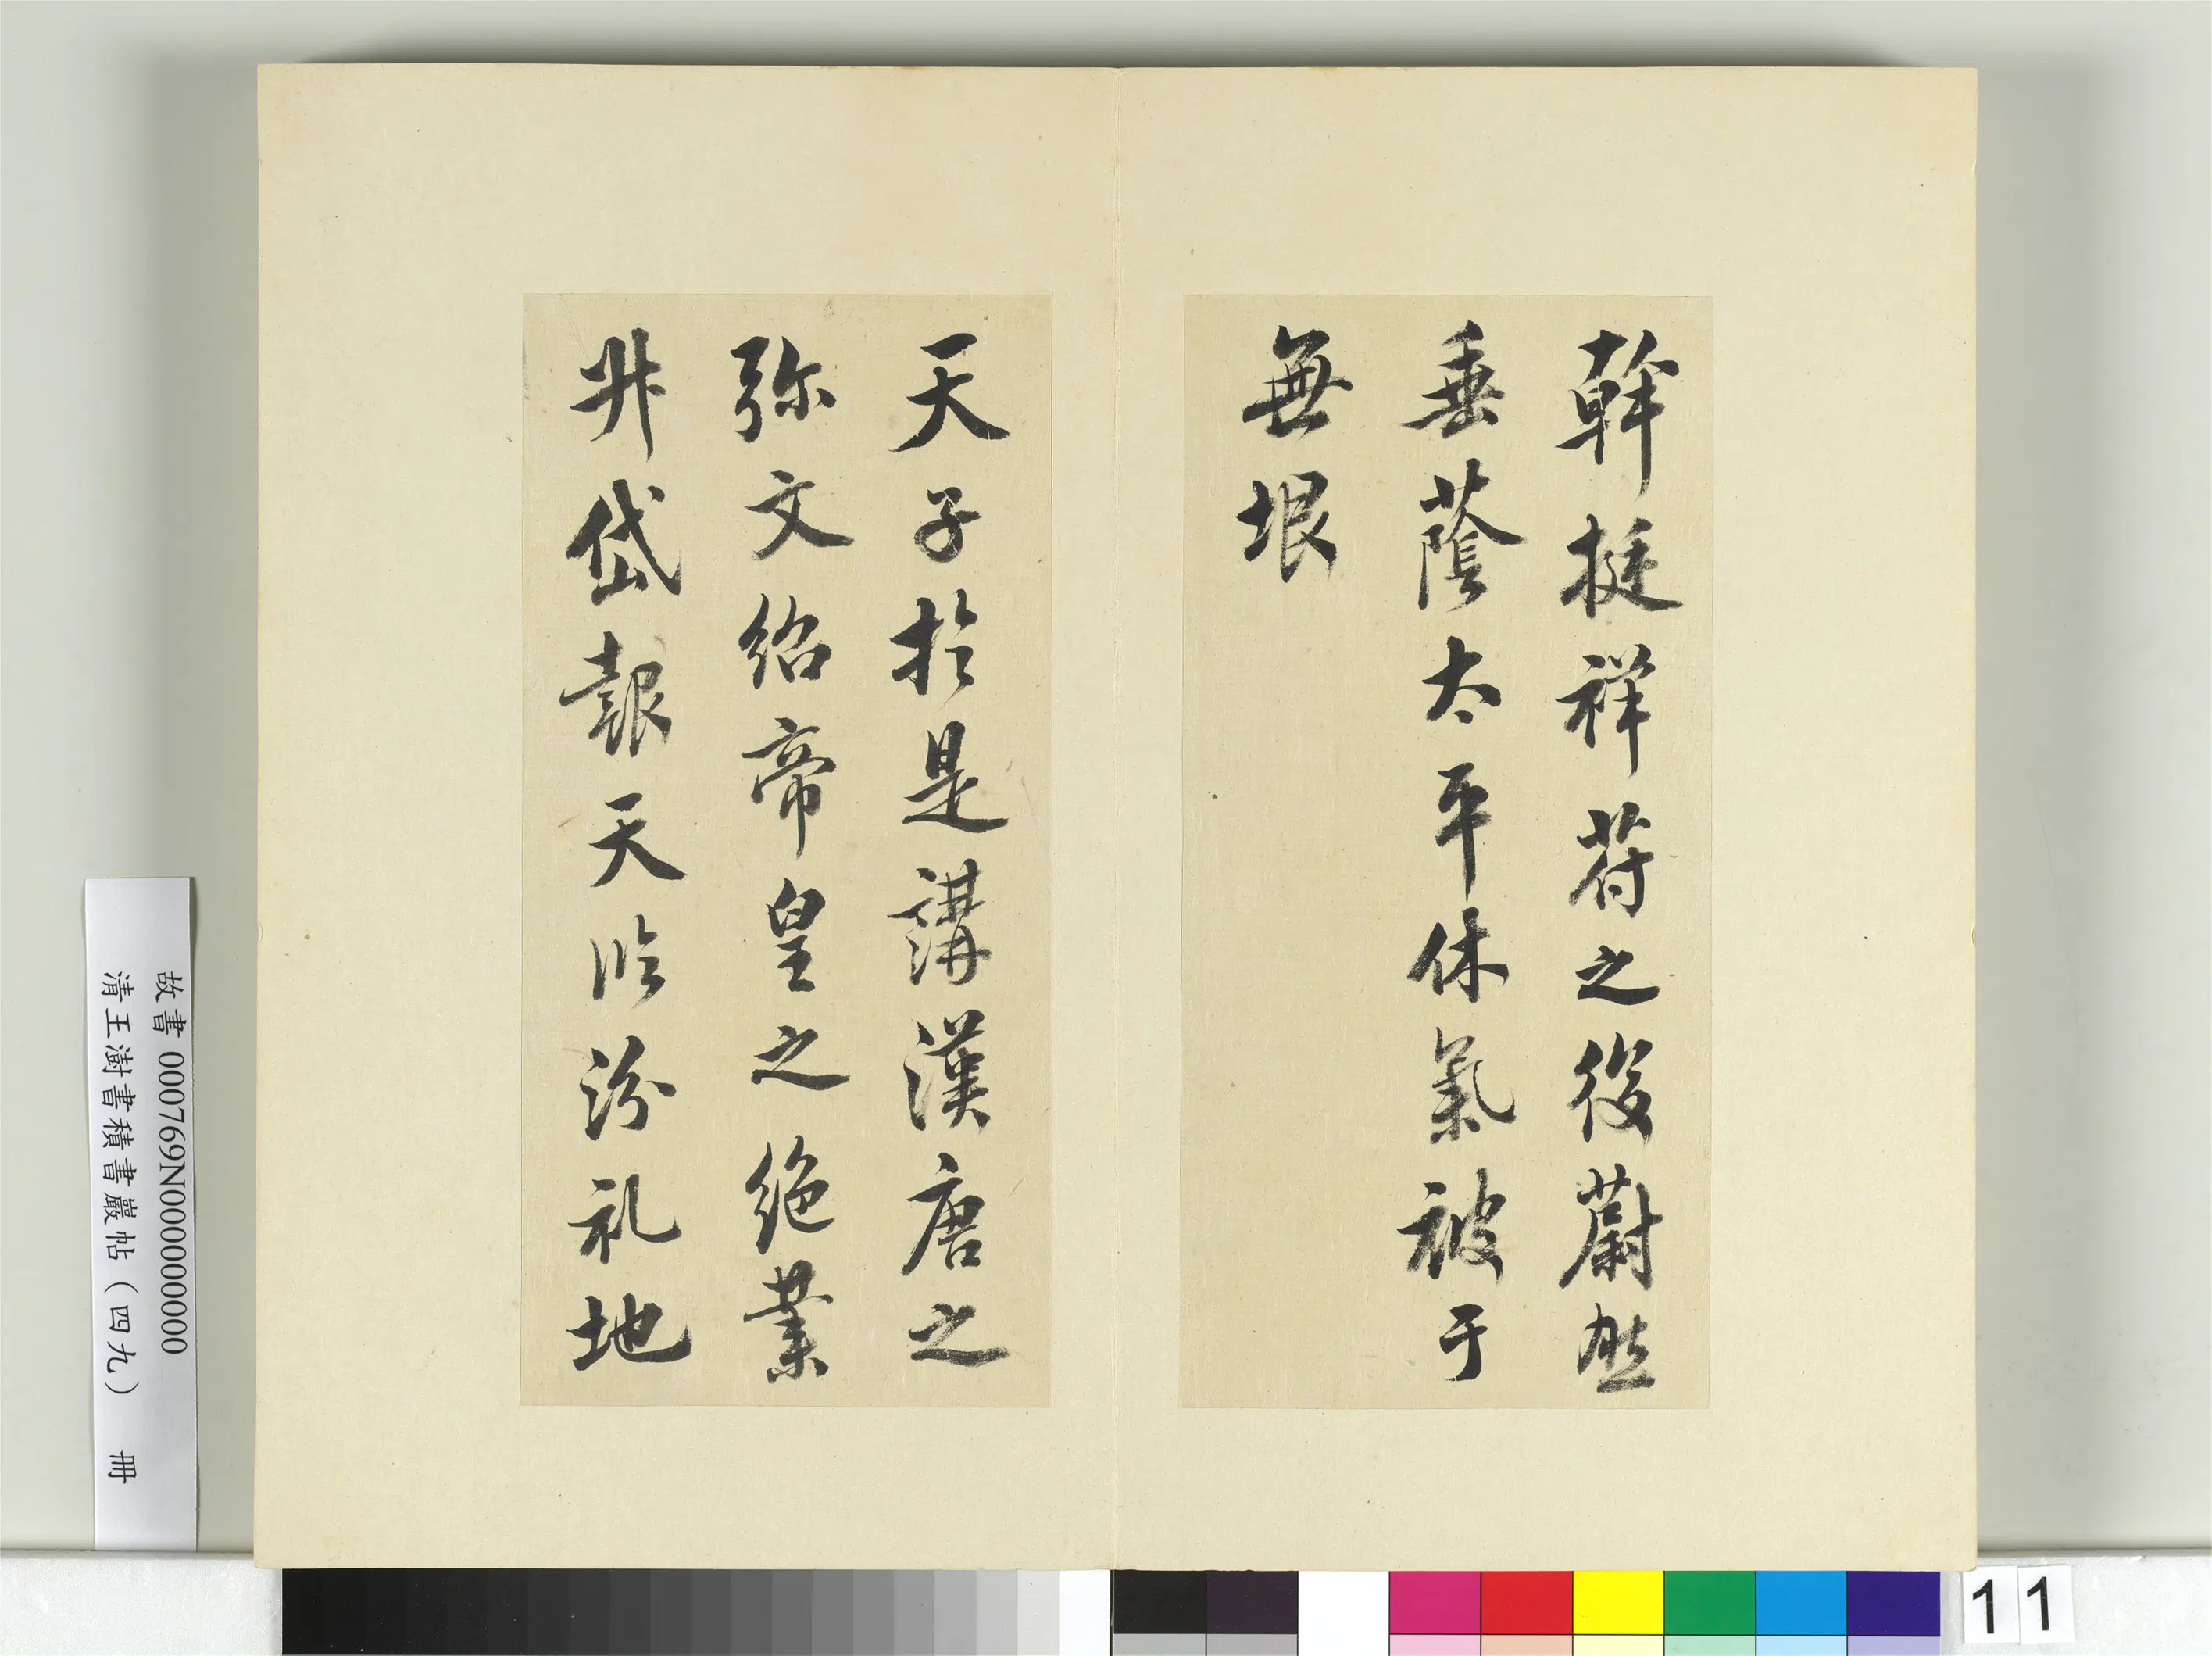 幹挺祥符之後蔚然
垂蔭太平休氣被于
無垠
天子於是講漢唐之
弥文紹帝皇之絶業
升岱報天臨汾礼地
故書 000769N000000000
清王澍書積書巖帖（四九） 冊
11